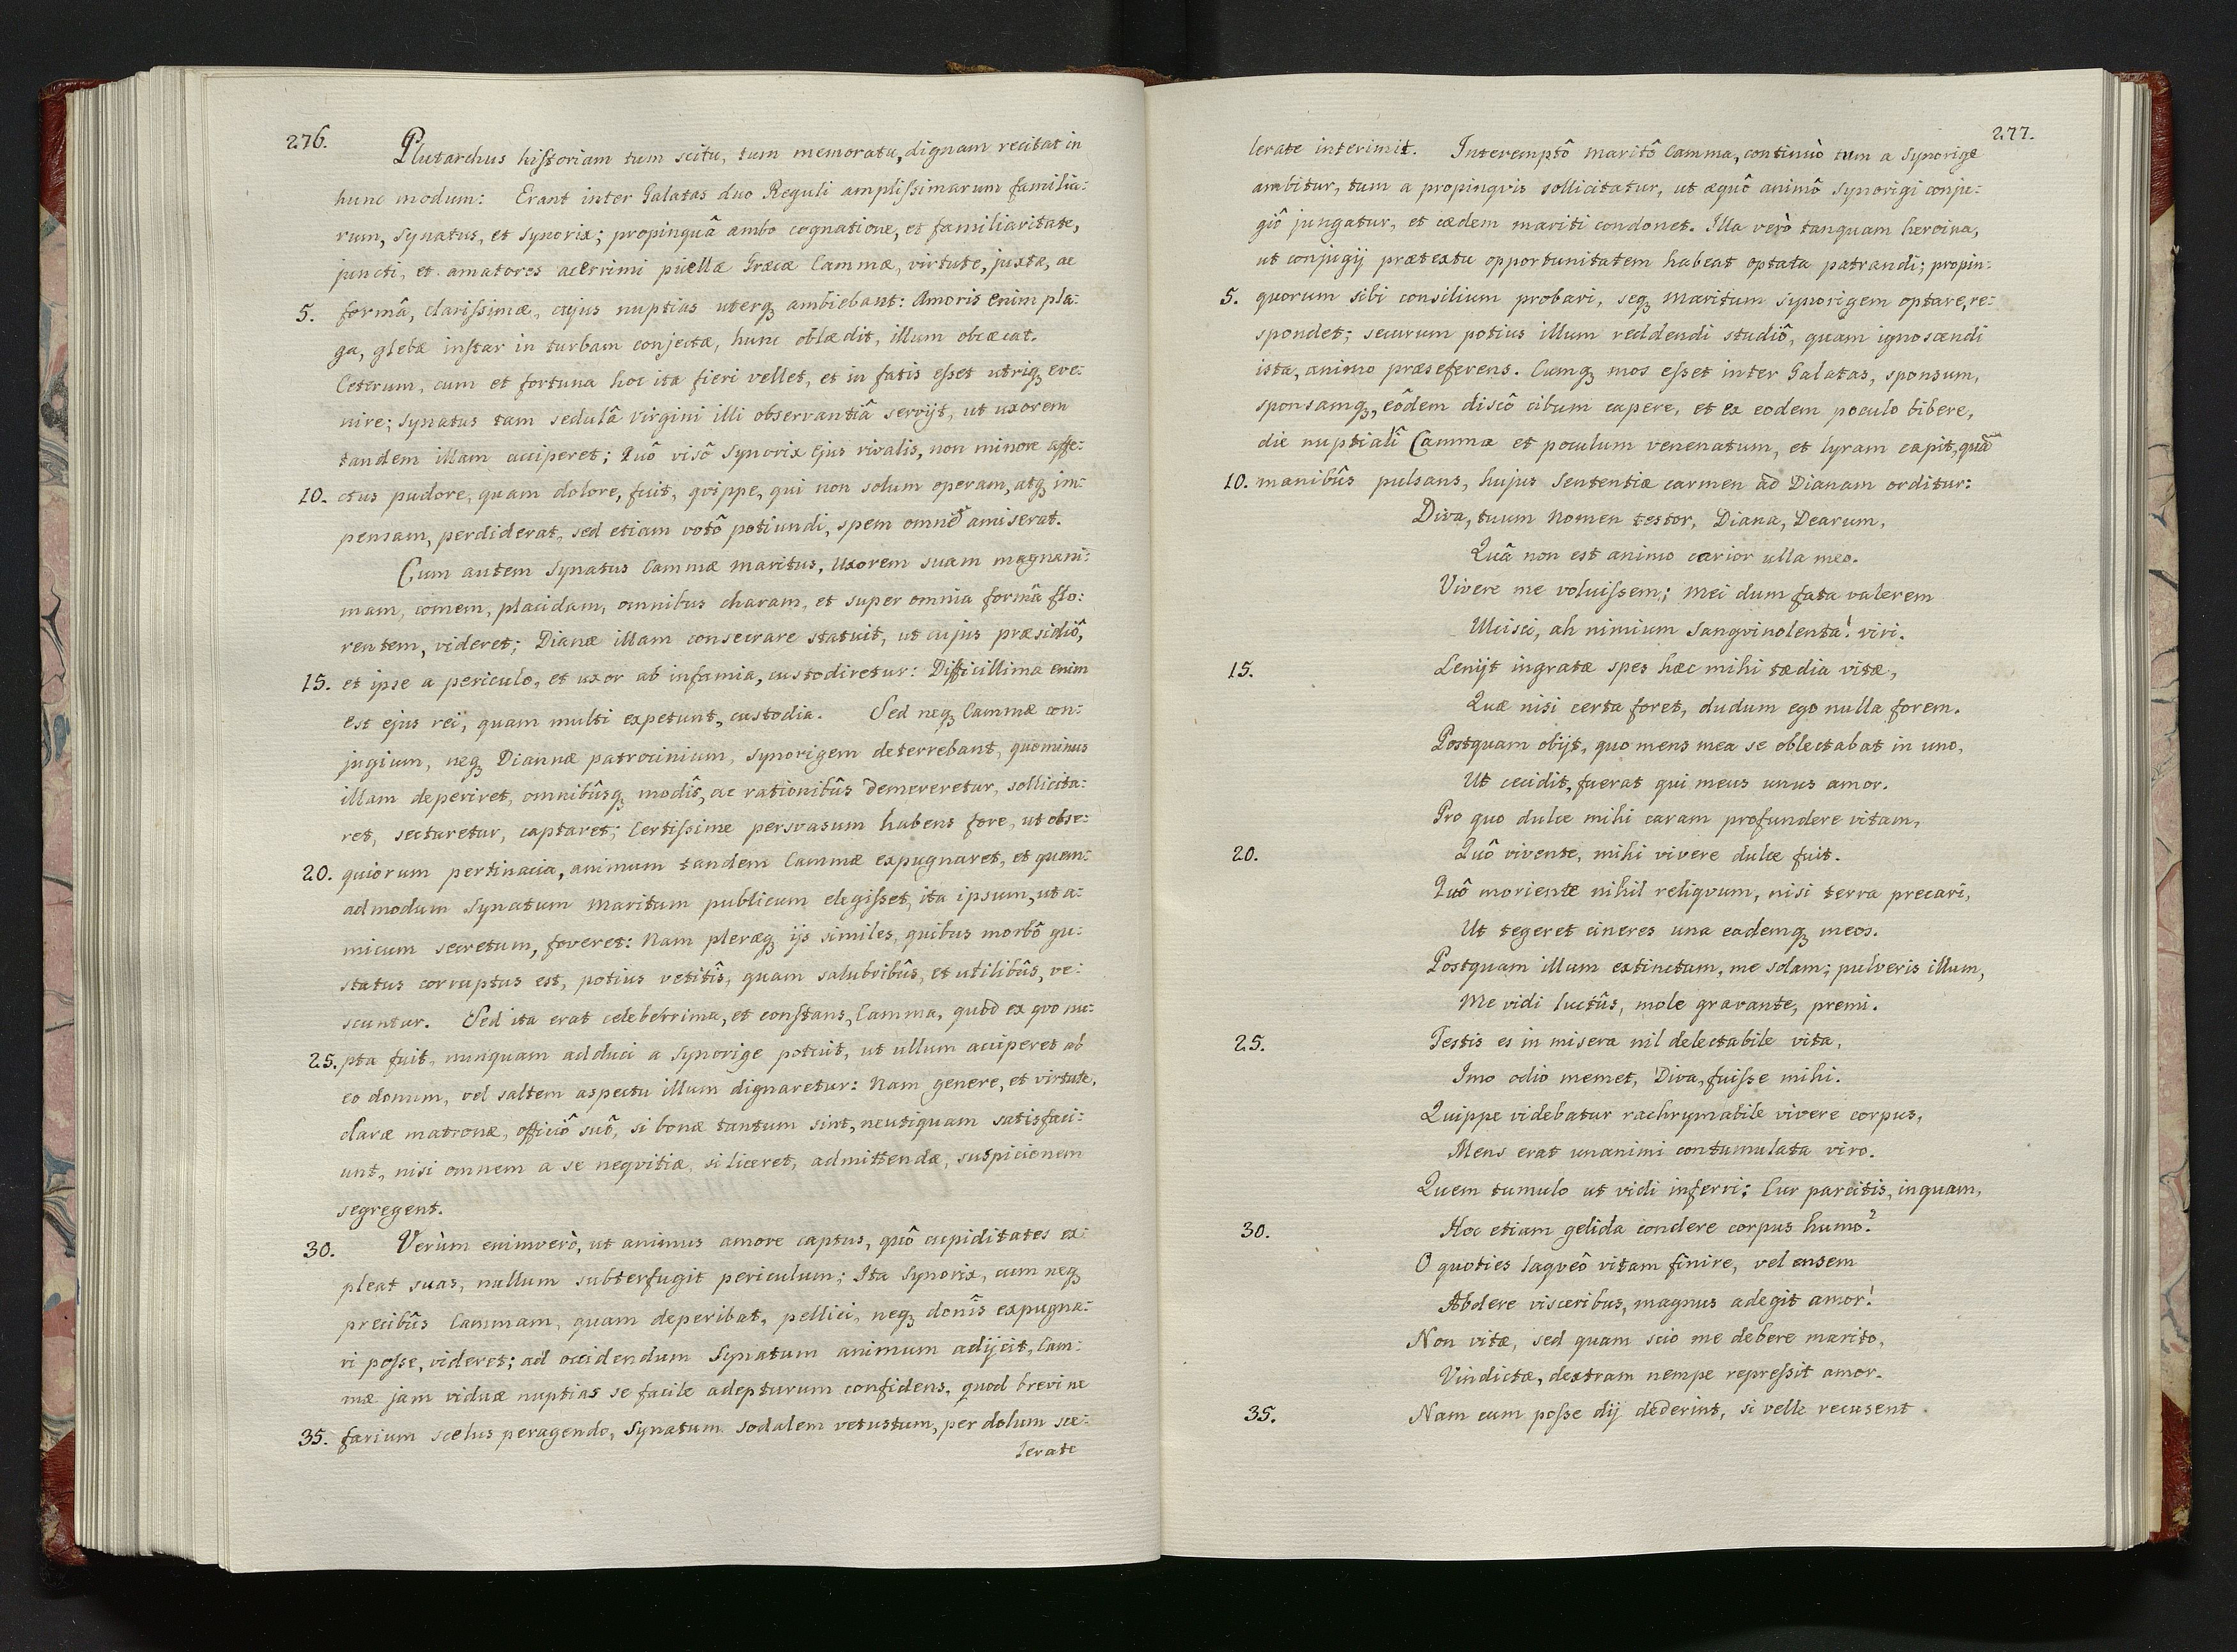 276.
Plutarchus historiam tum scitu, tum memoratu, dignam recitat in
hunc modum: Erant inter Galatas duo Reguli amplissimarum familia:
rum, Synatus, et Synorix; propinquâ ambo cognatione, et familiaritate,
juncti, et amatores acerrimi puellæ Græcæ Cammæ, virtute, juxta, ac
5. formâ, clarissimæ, cujus nuptias uterq ambiebant: Amoris enim pla:
ga, glebæ instar in turbam conjectæ, hunc oblædit, illum obcæcat.
Ceterum, cum et fortuna hoc ita fieri vellet, et in fatis esset utriq eve:
nire; Synatus tam sedulâ Virgini illi observantiâ servijt, ut uxorem
tandem illam acciperet; Quô visô Synorix ejus rivalis, non minore affe:
10. ctus pudore, quam dolore, fuit, qvippe, qui non solum operam, atq im:
pensam, perdiderat, sed etiam votô potiundi, spem omnem amiserat.
Cum autem Synatus Cammæ maritus, uxorem suam magnani:
mam, comem, placidam, omnibus charam, et super omnia formâ flo:
rentem, videret; Dianæ illam consecrare statuit, ut cujus præsidiô,
15. et ipse a periculo, et uxor ab infamia, custodiretur: Difficillima enim
est ejus rei, quam multi expetunt, custodia. Sed neq Cammæ con:
jugium, neq Diannæ patrocinium, Synorigem deterrebant, quominus
illam deperiret, omnibûsq modîs, ac rationibûs demereretur, sollicita:
ret, sectaretur, captaret; Certissime persvasum habens fore, ut obse:
20. quiorum pertinacia, animum tandem Cammæ expugnaret, et quem:
admodum Synatum Maritum publicum elegisset, ita ipsum, ut a:
micum secretum, foveret: Nam pleræq ijs similes, quibus morbô gu:
status corruptus est, potius vetitîs, quam salubribûs, et utilibûs, ve:
scuntur. Sed ita erat celeberrima, et constans, Camma, quod ex qvo nu:
25. pta fuit, nunquam adduci a Synorige potuit, ut ullum acciperet ab
eo donum, vel saltem aspectu illum dignaretur: Nam genere, et virtute,
claræ matronæ, officiô suô, si bonæ tantum sint, neutiquam satisfaci:
unt, nisi omnem a se neqvitiæ, si liceret, admittendæ, suspicionem
segregent.
30. Verùm enimverò, ut animus amore captus, quô cupiditates ex:
pleat suas, nullum subterfugit periculum; Ita Synorix, cum neq
precibûs Cammam, quam deperibat, pellici, neq donîs expugna:
ri posse, videret; ad occidendum Synatum animum adijcit, Cam:
mæ jam viduæ nuptias se facile adepturum confidens, quod brevi ne
35. farium scelus peragendo, Synatum sodalem vetustum, per dolum sce:
lerate
277.
lerate interimit. Interemptô maritô Camma, continuò tum a Synorige
ambitur, tum a propinqvis sollicitatur, ut æquô animô Synorigi conju:
giô jungatur, et cædem mariti condonet. Illa verò tanquam heroina,
ut conjugij prætextu opportunitatem habeat optata patrandi; propin:
5. quorum sibi consilium probari, seq Maritum Synorigem optare, re:
spondet; securum potius illum reddendi studiô, quam ignoscendi
ista, animo præseferens. Cumq mos esset inter Galatas, sponsum,
sponsamq, eôdem discô cibum capere, et ex eodem poculo bibere,
die nuptialî Camma et poculum venenatum, et lyram capit, quã
10. manibûs pulsans, hujus sententiæ carmen ad Dianam orditur:
Diva, tuum Nomen testor, Diana, Dearum,
Quâ non est animo carior ulla meo.
Vivere me voluissem; mei dum fata valerem
Ulcisci, ah nimium sangvinolenta! viri.
15. Lenijt ingratæ spes hæc mihi tædia vitæ,
Quæ nisi certa foret, dudum ego nulla forem.
Postquam obijt, quo mens mea se oblectabat in uno,
Ut cecidit, fuerat qui meus unus amor.
Pro quo dulce mihi caram profundere vitam,
20. Quô vivente, mihi vivere dulce fuit.
Quô moriente nihil reliqvum, nisi terra precari,
Ut tegeret cineres una eademq meos.
Postquam illum extinctum, me solam; pulveris illum,
Me vidi luctûs, mole gravante, premi.
25. Testis es in misera nil delectabile vita,
Imo odio memet, Diva, fuisse mihi.
Quippe videbatur rachrymabile vivere corpus,
Mens erat unanimi contumulata viro.
Quem tumulo ut vidi inferri: Cur parcitis, inquam,
30. Hoc etiam gelida condere corpus humo?
O quoties laqveô vitam finire, vel ensem
Abdere visceribus, magnus adegit amor!
Non vitæ, sed quam scio me debere marito,
Vindictæ, dextram nempe repressit amor.
35. Nam cum posse dij dederint, si velle recusent